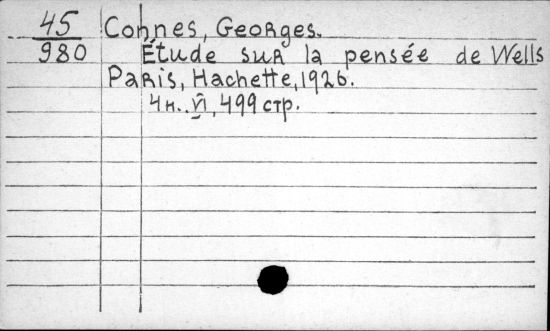 45 Connes, Georges.
980 Étude sur la pensée de Wells
Paris, Hachette, 1926.
4н. VI, 499 стр.